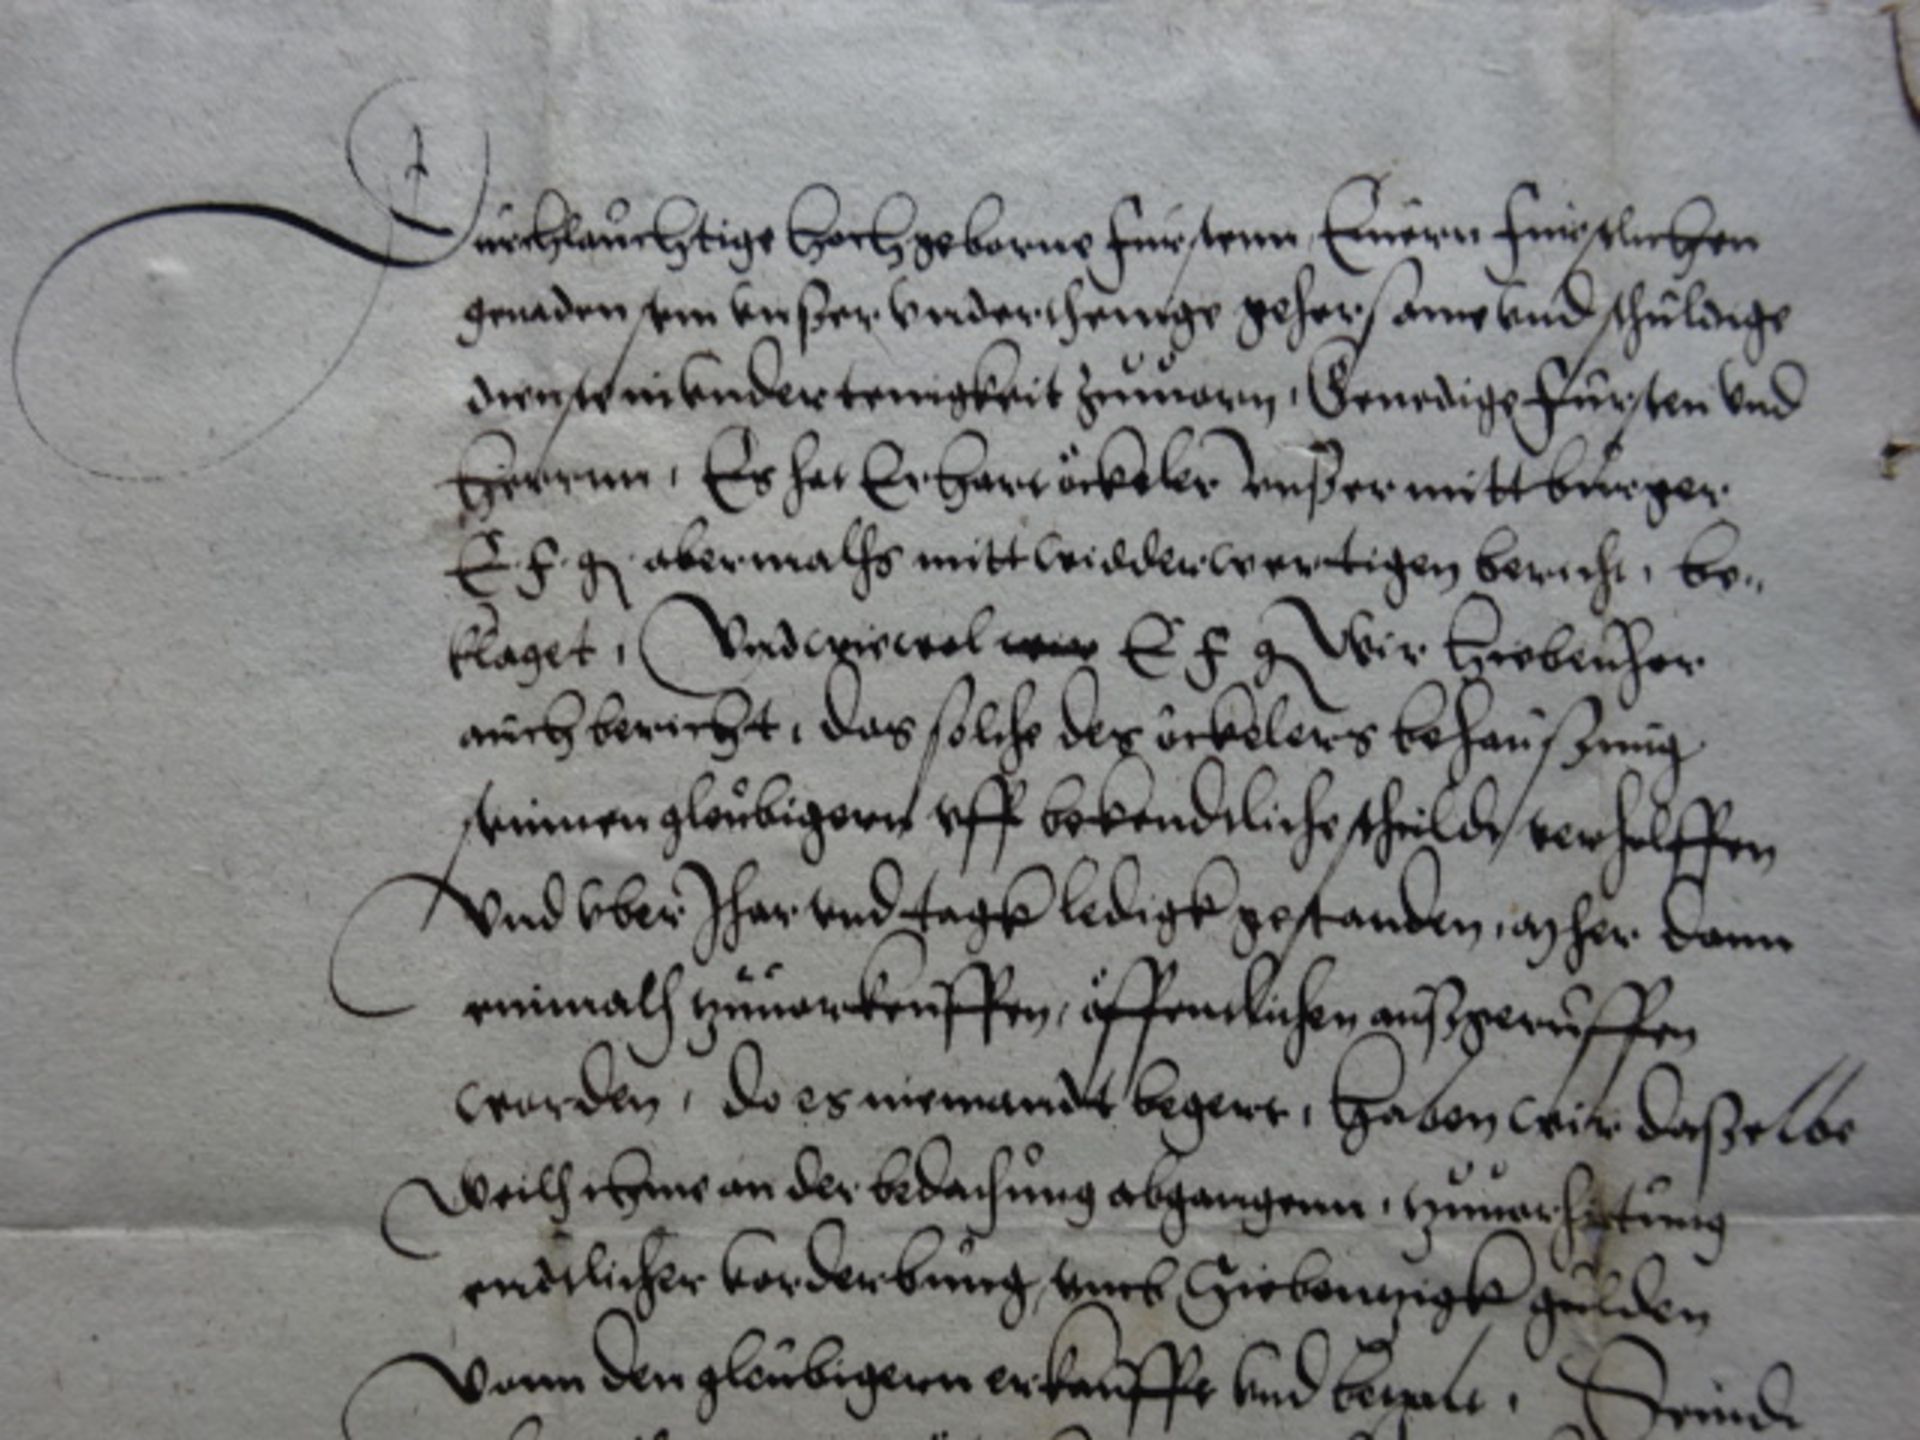 Durchlauchtige hochgeborne furstenn Euern furstlichen
genaden sein vnßer vnderthenige gehorsame vnd schuldige
dienste in vndertenigkeit zuuorn, Genedige fursten vnd
herrnn, Es hat Erhart öckeler vnßer mittburger
E. F. g. abermalhs mitt widderwertigen bericht, be„
klaget, Vnd wiewol E F g Wir hiebeuhor
auch bericht, das solche des öckelers behaußung
seinnen gleubigern vff bekendtliche schuldt verholffen
Vnd vber Jhar vnd tagk ledigk gestanden, dann
einmalh zuuorkeuffen, öffentlichen außgeruffen
worden, do es niemandt begert, haben wir daßelbe
weilh ihme an der bedachung abgangenn, zuuorhutung
endtlicher vorderbung, vmb Siebennzigk gulden
Vonn den gleubigern erkaufft vnd bezalt, Seindt